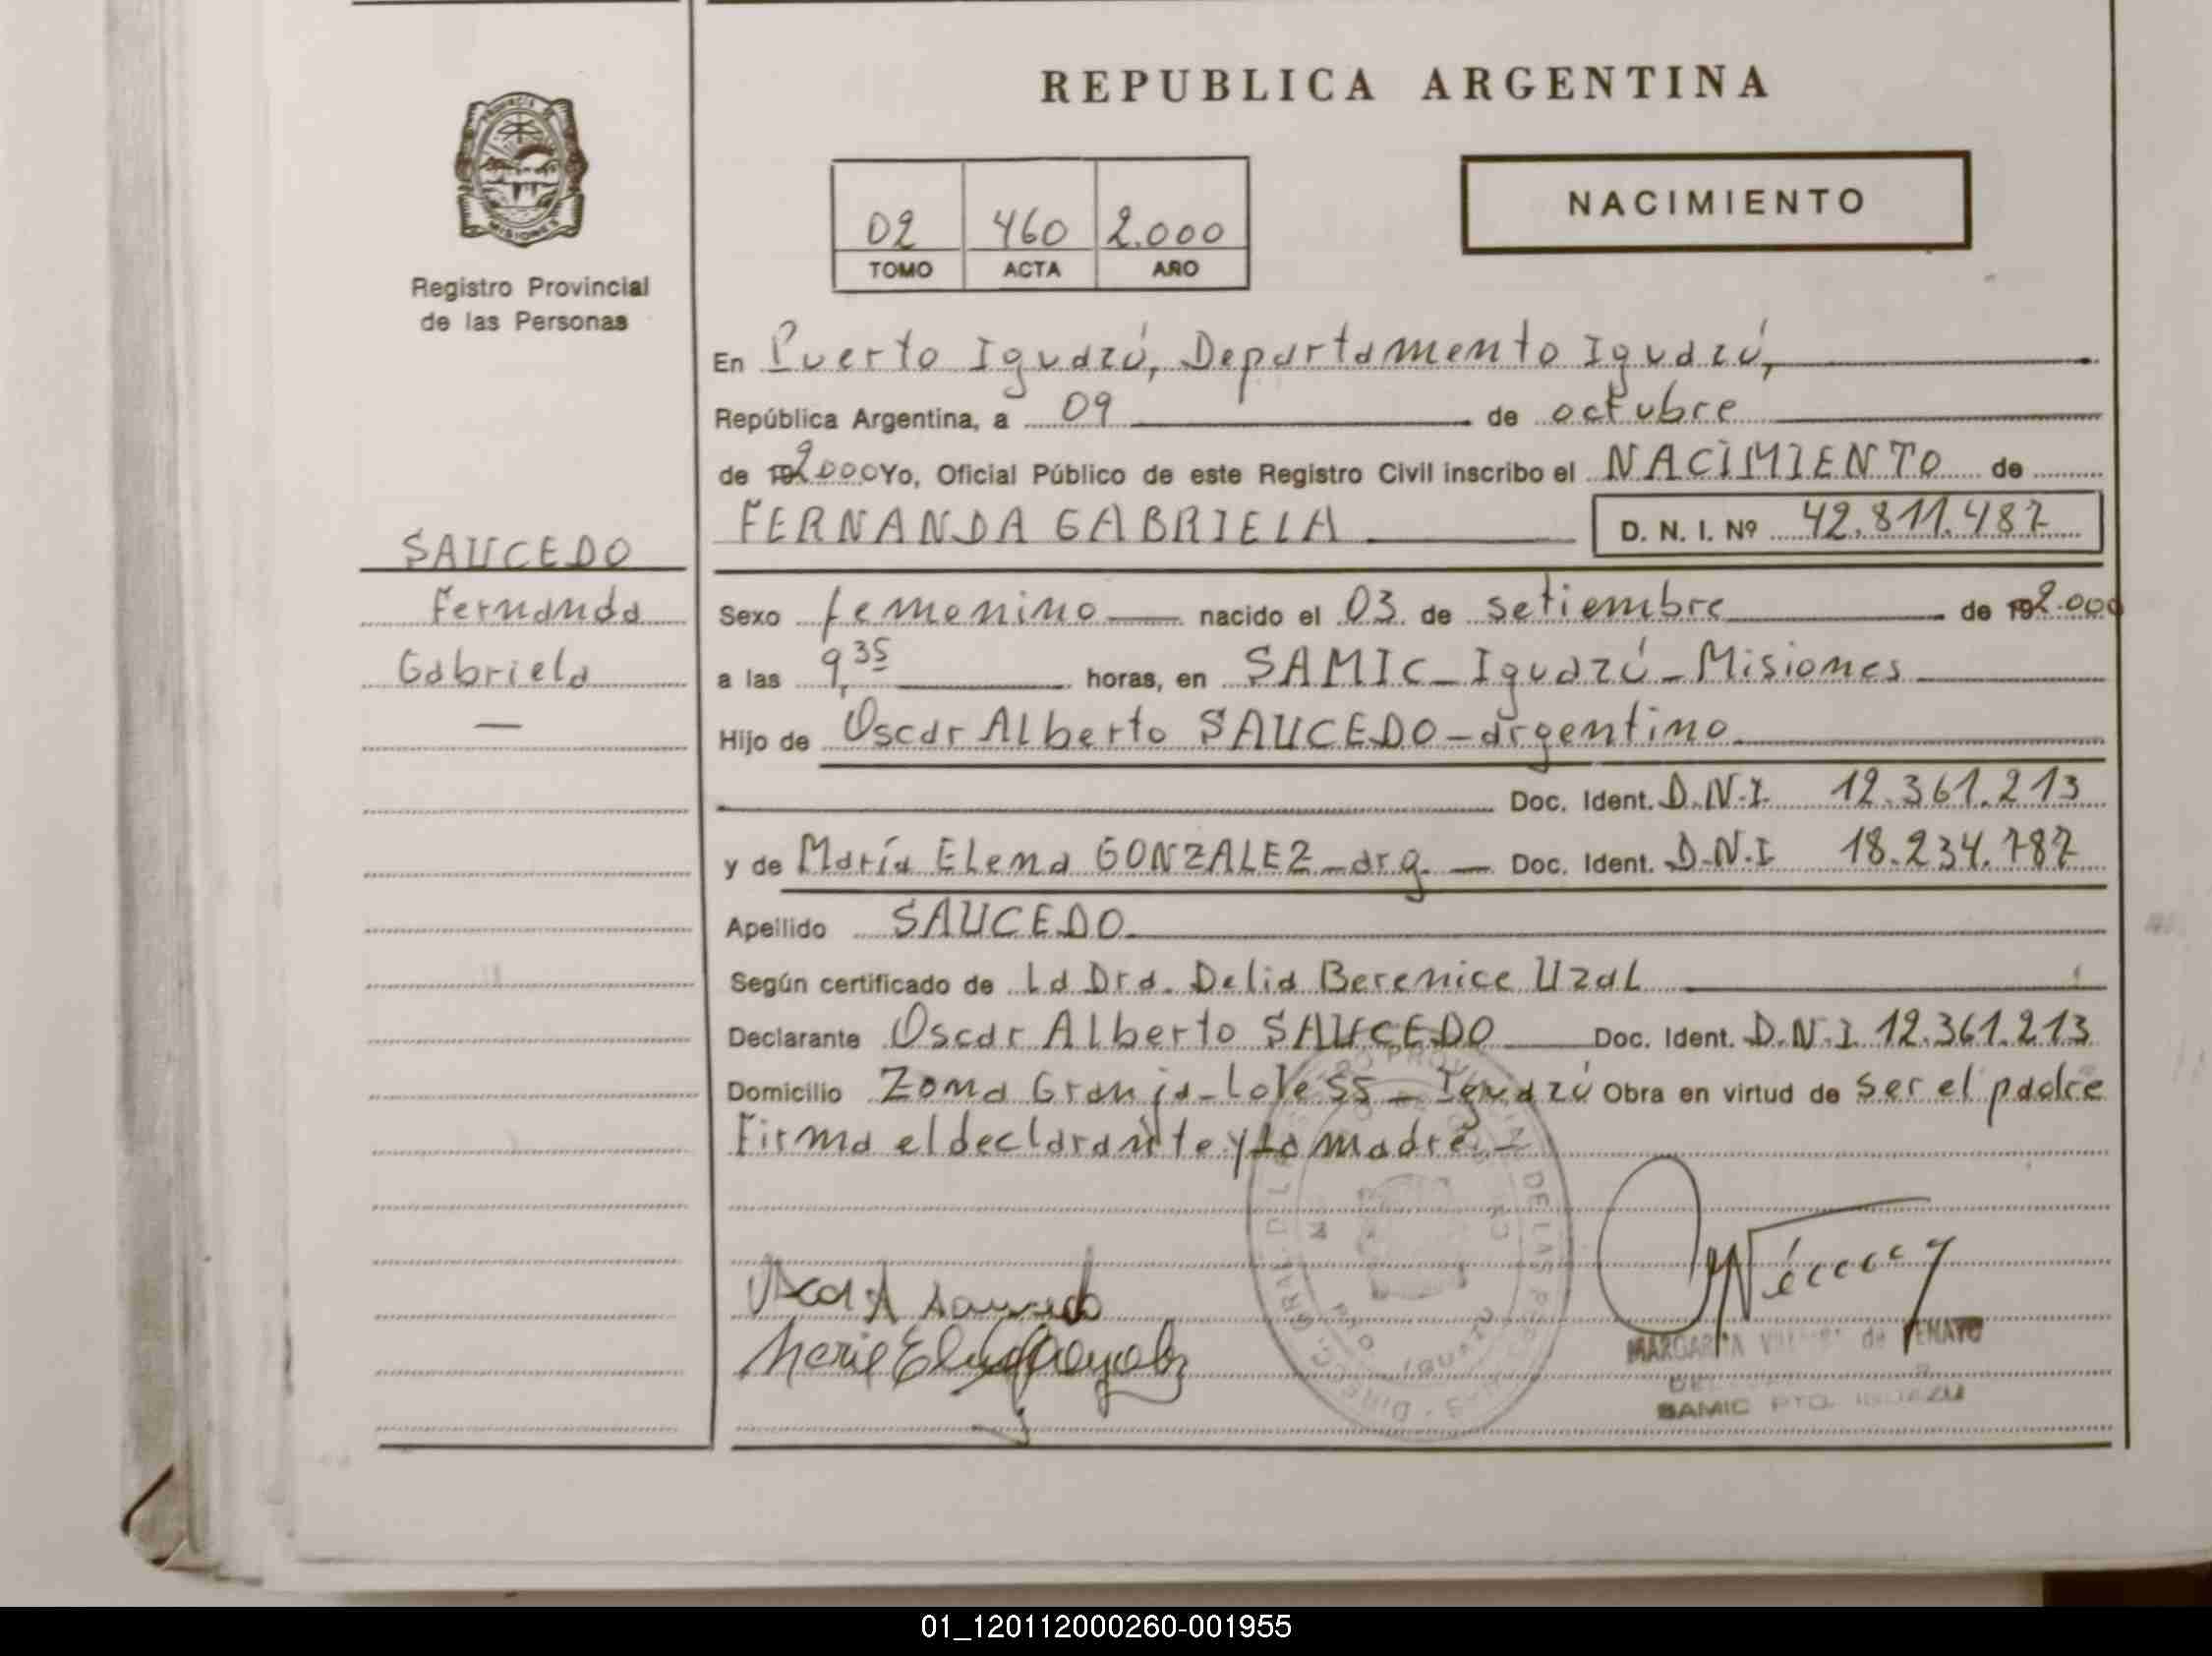 REPUBLICA ARGENTINA
PROVINCIA DE
MISIONES
Registro Provincial
de las Personas
02 460 2.000
TOMO ACTA AÑO
NACIMIENTO
En Puerto Iguazú, Departamento Iguazú,
República Argentina, a 09 de octubre
de 192000 Yo, Oficial Público de este Registro Civil inscribo el NACIMIENTO de
FERNANDA GABRIELA D. N. I. Nº 42.811.487
SAUCEDO
Fernanda
Gabriela
Sexo femenino nacido el 03 de setiembre de 192.000
a las 9,35 horas, en SAMIC - Iguazú - Misiones
Hijo de Oscar Alberto SAUCEDO - argentino
Doc. Ident. D.N.I. 12.361.213
y de María Elena GONZALEZ - arg. - Doc. Ident. D.N.I 18.234.787
Apellido SAUCEDO
Según certificado de La Dra. Delia Berenice Uzal
Declarante Oscar Alberto SAUCEDO Doc. Ident. D.N.I. 12.361.213
Domicilio Zona Granja - Lote 55 - Iguazú Obra en virtud de ser el padre
Firma el declarante y la madre. -
Oscar A Saucedo
MARGARITA de PENAYO
SAMIC PTO. IGUAZU
01_120112000260-001955